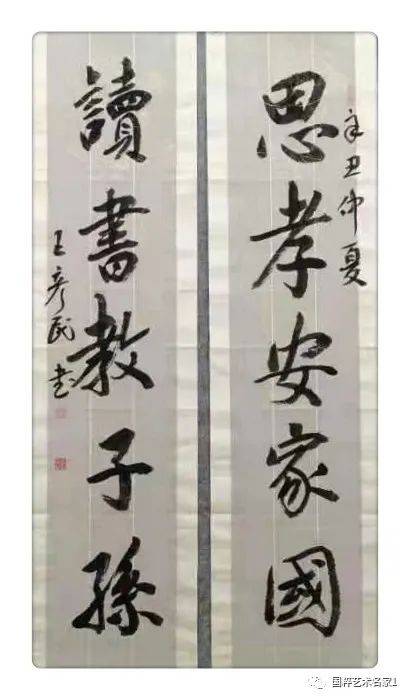 辛丑仲夏
思孝安家國
讀書教子孫
王彦民书
国粹艺术名家1